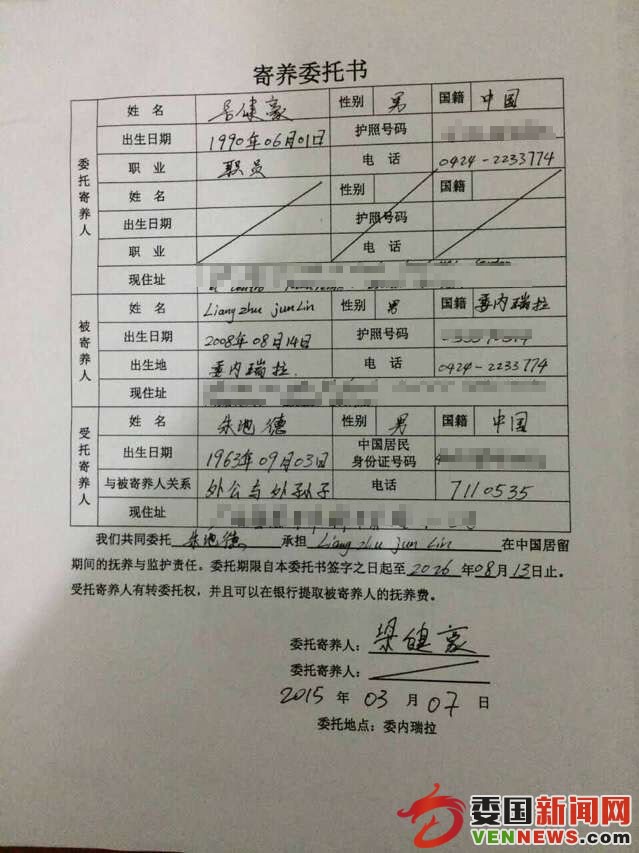 寄养委托书
委托寄养人
姓名 梁健豪 性别 男 国籍 中国
出生日期 1990年06月01日 护照号码
职业 职员 电话 0424-2233774
姓名 性别 国籍
出生日期 护照号码
职业 电话
现住址
被寄养人
姓名 Liang zhu junLin 性别 男 国籍 委内瑞拉
出生日期 2008年08月14日 护照号码
出生地 委内瑞拉. 电话 0424-2233774
现住址
受托寄养人
姓名 朱池德 性别 男 国籍 中国
出生日期 1963年09月03日 中国居民身份证号码
与被寄养人关系 外公与外孙子 电话 7110535
现住址
我们共同委托 朱池德 承担 Liang zhu jun Lin 在中国居留
期间的抚养与监护责任。委托期限自本委托书签字之日起至2026年08月13日止。
受托寄养人有转委托权，并且可以在银行提取被寄养人的抚养费。
委托寄养人：梁健豪
委托寄养人：
2015年03月07日
委托地点：委内瑞拉
委国新闻网
VENNEWS.com